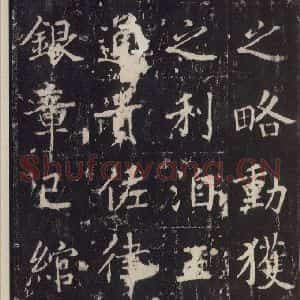 之略動獲
之利洎玉
通貴佐律
銀章已綰
Shufawang.CN